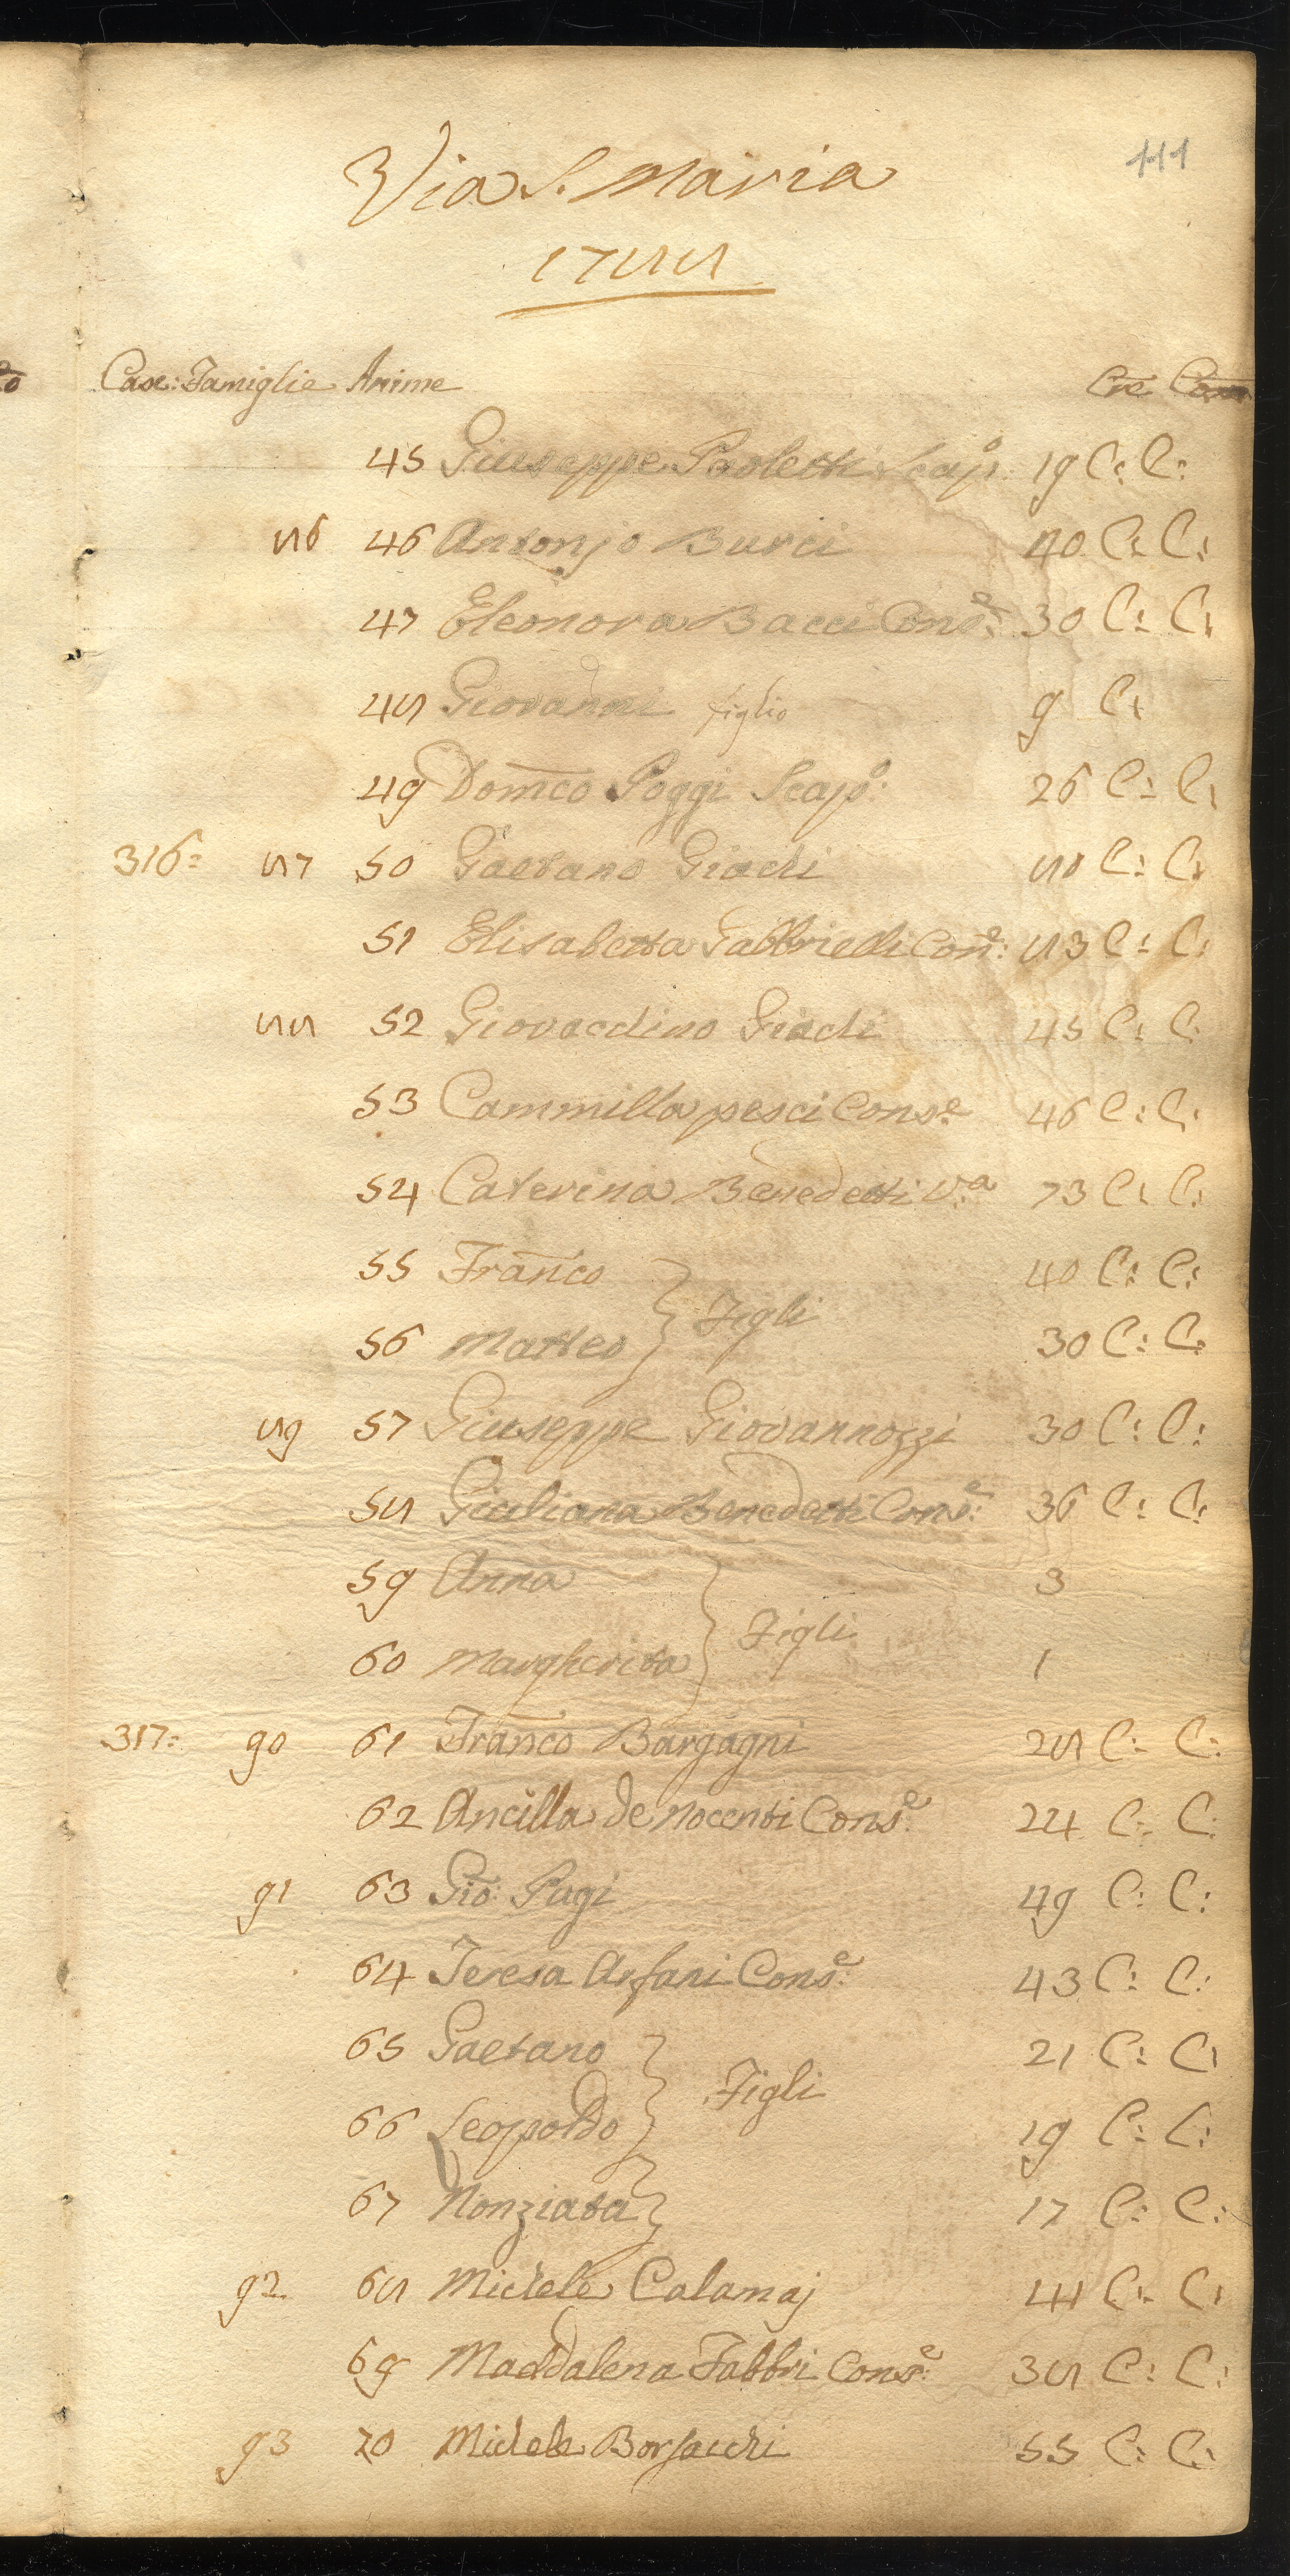 111
Via S. Maria
1788
Case: Famiglie Anime Cre Com
45 Giuseppe Paoletti Scap.o 19 C: C:
86 46 Antonjo Burci 40 C: C:
47 Eleonora Bacci Cons.e 30 C: C:
48 Giovanni figlio 9 C:
49 Domco Poggi Scap.o: 26 C: C:
316: 87 50 Gaetano Giachi 80 C: C:
51 Elisabetta Gabbrielli Con.e: 83 C: C:
88 52 Giovacchino Giachi 45 C: C:
53 Cammilla pesci Cons.e 46 C: C:
54 Caterina Benedetti V.a 73 C: C:
55 Franco 40 C: C:
56 Matteo } Figli 30 C: C:
89 57 Giuseppe Giovannozzi 30 C: C:
58 Giuliana Benedetti Cons.e: 36 C: C:
59 Anna 3
60 Margherita } Figli 1
317: 90 61 Franco Bargagni 28 C: C:
62 Ancilla de Nocenti Cons.e 24 C: C:
91 63 Gio: Pagi 49 C: C:
64 Teresa Arfani Cons.e: 43 C: C:
65 Gaetano 21 C: C:
66 Leopoldo } Figli 19 C: C:
67 Nonziata } 17 C: C:
92 68 Michele Calamaj 44 C: C:
69 Maddalena Fabbri Cons.e: 38 C: C:
93 70 Michele Borsacchi 55 C: C: